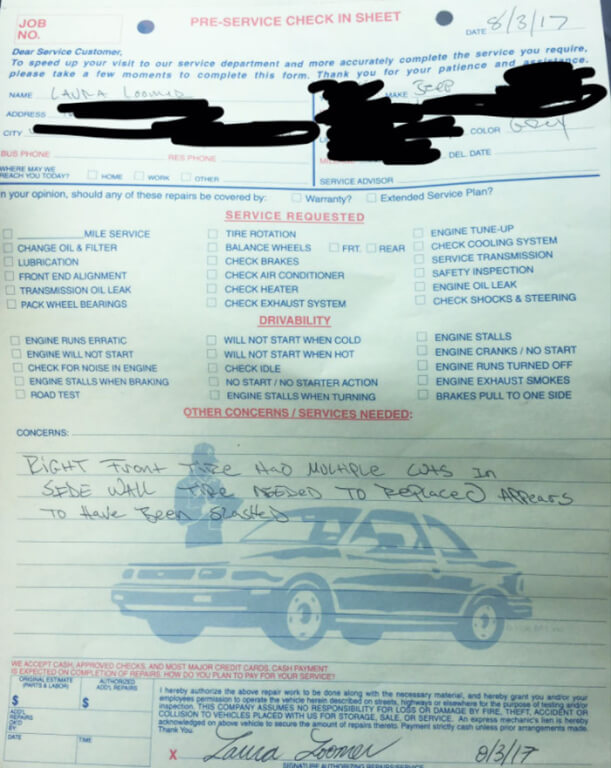 JOB NO.
PRE-SERVICE CHECK IN SHEET
DATE 8/3/17
Dear Service Customer,
To speed up your visit to our service department and more accurately complete the service you require,
please take a few moments to complete this form. Thank you for your patience and assistance.
NAME LAURA LOOMER
MAKE JEEP
ADDRESS
CITY
COLOR GREY
BUS PHONE
RES PHONE
DEL. DATE
WHERE MAY WE REACH YOU TODAY? HOME WORK OTHER
SERVICE ADVISOR
In your opinion, should any of these repairs be covered by: Warranty? Extended Service Plan?
SERVICE REQUESTED
MILE SERVICE
CHANGE OIL & FILTER
LUBRICATION
FRONT END ALIGNMENT
TRANSMISSION OIL LEAK
PACK WHEEL BEARINGS
TIRE ROTATION
BALANCE WHEELS FRT. REAR
CHECK BRAKES
CHECK AIR CONDITIONER
CHECK HEATER
CHECK EXHAUST SYSTEM
ENGINE TUNE-UP
CHECK COOLING SYSTEM
SERVICE TRANSMISSION
SAFETY INSPECTION
ENGINE OIL LEAK
CHECK SHOCKS & STEERING
DRIVABILITY
ENGINE RUNS ERRATIC
ENGINE WILL NOT START
CHECK FOR NOISE IN ENGINE
ENGINE STALLS WHEN BRAKING
ROAD TEST
WILL NOT START WHEN COLD
WILL NOT START WHEN HOT
CHECK IDLE
NO START / NO STARTER ACTION
ENGINE STALLS WHEN TURNING
ENGINE STALLS
ENGINE CRANKS / NO START
ENGINE RUNS TURNED OFF
ENGINE EXHAUST SMOKES
BRAKES PULL TO ONE SIDE
OTHER CONCERNS / SERVICES NEEDED:
CONCERNS:
RIGHT Front TIRE HAD MULTIPLE CUTS In
SIDE WALL TIRE NEEDED TO Replaced Appears
To Have Been Slashed
WE ACCEPT CASH, APPROVED CHECKS, AND MOST MAJOR CREDIT CARDS. CASH PAYMENT
IS EXPECTED ON COMPLETION OF REPAIRS. HOW DO YOU PLAN TO PAY FOR YOUR SERVICE?
ORIGINAL ESTIMATE (PARTS & LABOR)
AUTHORIZED ADD'L REPAIRS
$
$
ADD'L REPAIRS
BY
DATE
TIME
I hereby authorize the above repair work to be done along with the necessary material, and hereby grant you and/or your
employees permission to operate the vehicle herein described on streets, highways or elsewhere for the purpose of testing and/or
inspection. THIS COMPANY ASSUMES NO RESPONSIBILITY FOR LOSS OR DAMAGE BY FIRE, THEFT, ACCIDENT OR
COLLISION TO VEHICLES PLACED WITH US FOR STORAGE, SALE, OR SERVICE. An express mechanic's lien is hereby
acknowledged on above vehicle to secure the amount of repairs thereto. Payment strictly cash unless prior arrangements made.
Thank You
X Laura Loomer 8/3/17
SIGNATURE AUTHORIZING REPAIRS/SERVICE